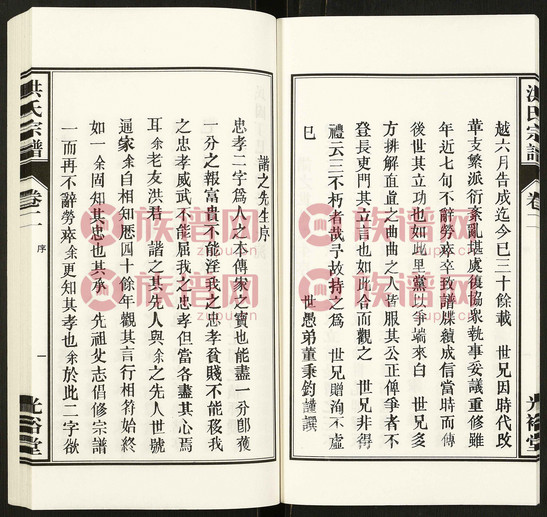 洪氏宗譜
卷二
光裕堂
越六月告成迄今巳三十餘載 世兄因時代改
革支繁派衍紊亂堪處復協衆執事妥議重修雖
年近七旬不辭勞瘁卒致譜牒續成信當時而傳
後世其立功也如此里黨以爭端來白 世兄多
方排解直直之曲曲之皆服其公正俾爭者不
登長吏門其立言也如此合而觀之 世兄非得
禮云三不朽者哉寻故持之爲 世兄贈洵不虛
巳
世愚弟董秉鈞謹撰
諧之先生序
忠孝二字爲人之本傳家之寶也能盡一分卽獲
一分之報富貴不能淫我之忠孝貧賤不能移我
之忠孝威武不能屈我之忠孝但當各盡其心焉
耳余老友洪君 諧之其先人與余之先人世號
通家余自相知歷四十餘年觀其言行相符始終
如一余固知其忠也其承 先祖父志倡修宗譜
一而再不辭勞瘁余更知其孝也余於此二字欲
洪氏宗譜
卷二
序
一
光裕堂
族谱网
zupu.cn
族谱网
zupu.cn
族谱网
zupu.cn
族谱网
zupu.cn